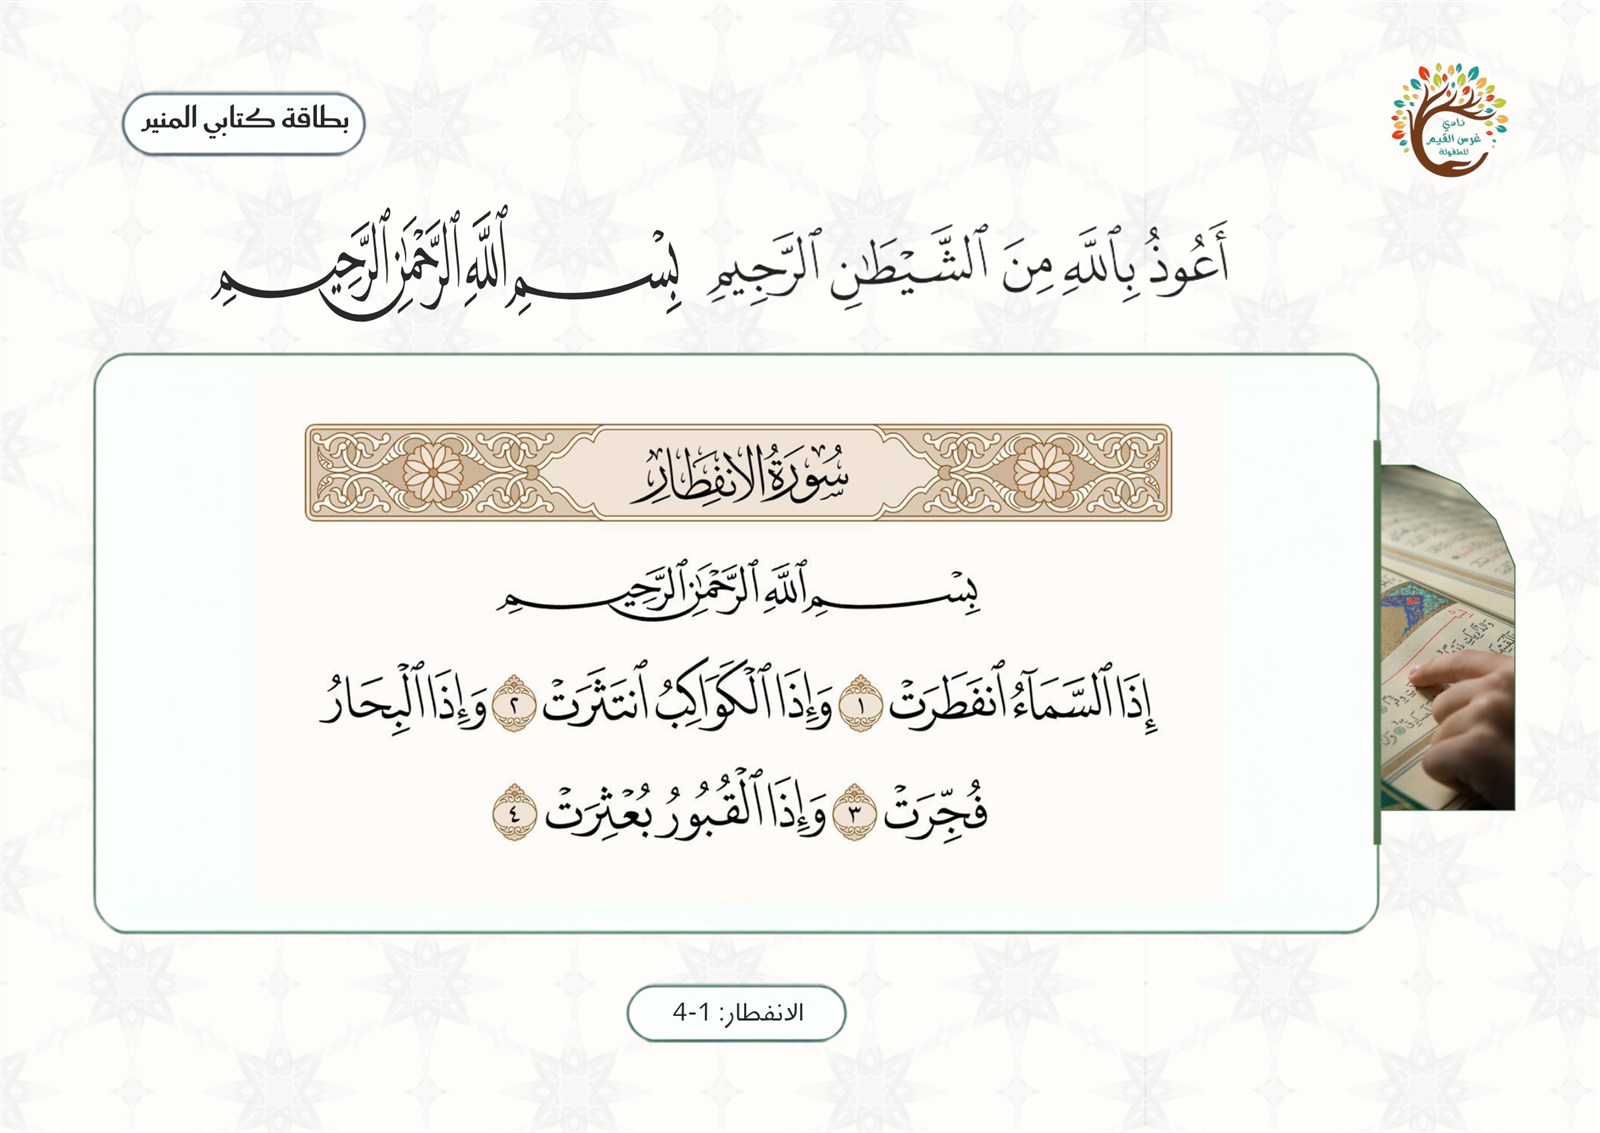 نادي
غرس القيم
للطفولة
بطاقة كتابي المنير
أَعُوذُ بِٱللَّهِ مِنَ ٱلشَّيْطَٰنِ ٱلرَّجِيمِ بِسْمِ ٱللَّهِ ٱلرَّحْمَٰنِ ٱلرَّحِيمِ
سُورَةُ الِانفِطَارِ
بِسْمِ ٱللَّهِ ٱلرَّحْمَٰنِ ٱلرَّحِيمِ
إِذَا ٱلسَّمَآءُ ٱنفَطَرَتْ ١ وَإِذَا ٱلْكَوَاكِبُ ٱنتَثَرَتْ ٢ وَإِذَا ٱلْبِحَارُ
فُجِّرَتْ ٣ وَإِذَا ٱلْقُبُورُ بُعْثِرَتْ ٤
الانفطار: 1-4